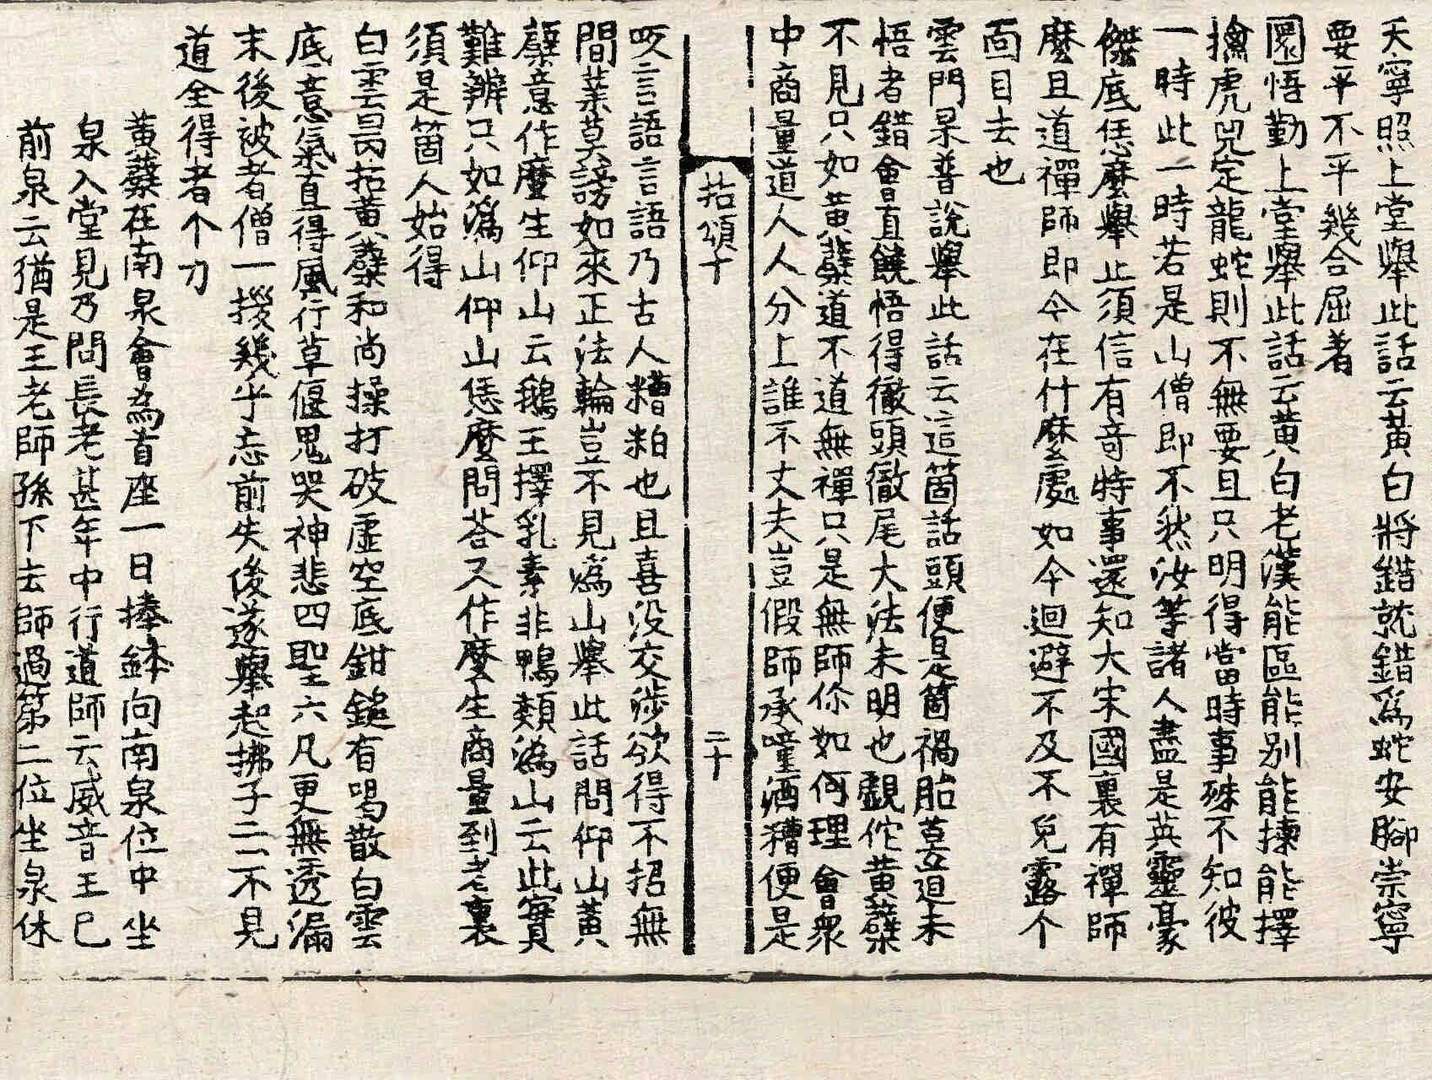 天寧照上堂舉此話云黃白將錯就錯爲蛇安腳崇寧
要平不平幾合屈著
圜悟勤上堂舉此話云黃白老漢能區能別能揀能擇
擒虎兕定龍蛇則不無要且只明得當時事殊不知彼
一時此一時若是山僧即不然汝等諸人盡是英靈豪
傑底恁麼舉止須信有奇特事還知大宋國裏有禪師
麼且道禪師即今在什麼處如今迴避不及不免露个
面目去也
雲門杲普說舉此話云這箇話頭便是箇禍胎蓋迫未
悟者錯會直饒悟得徹頭徹尾大法未明也覷佗黃蘗
不見只如黃蘗道不道無禪只是無師你如何理會眾
中商量道人人分上誰不丈夫豈假師承噇酒糟便是
拈頌十
二十
咬言語言語乃古人糟粕也且喜沒交涉欲得不招無
間業莫謗如來正法輪豈不見溈山舉此話問仰山黃
蘗意作麼生仰山云鵝王擇乳素非鴨類溈山云此實
難辨只如溈山仰山恁麼問荅又作麼生商量到者裏
須是箇人始得
白雲昺拈黃蘗和尚操打破虛空底鉗鎚有喝散白雲
底意氣直得風行草偃鬼哭神悲四聖六凡更無透漏
末後被者僧一拶幾乎忘前失後遂舉起拂子云不見
道全得者个力
黃蘗在南泉會爲首座一日捧鉢向南泉位中坐
泉入堂見乃問長老甚年中行道師云威音王已
前泉云猶是王老師孫下去師過第二位坐泉休